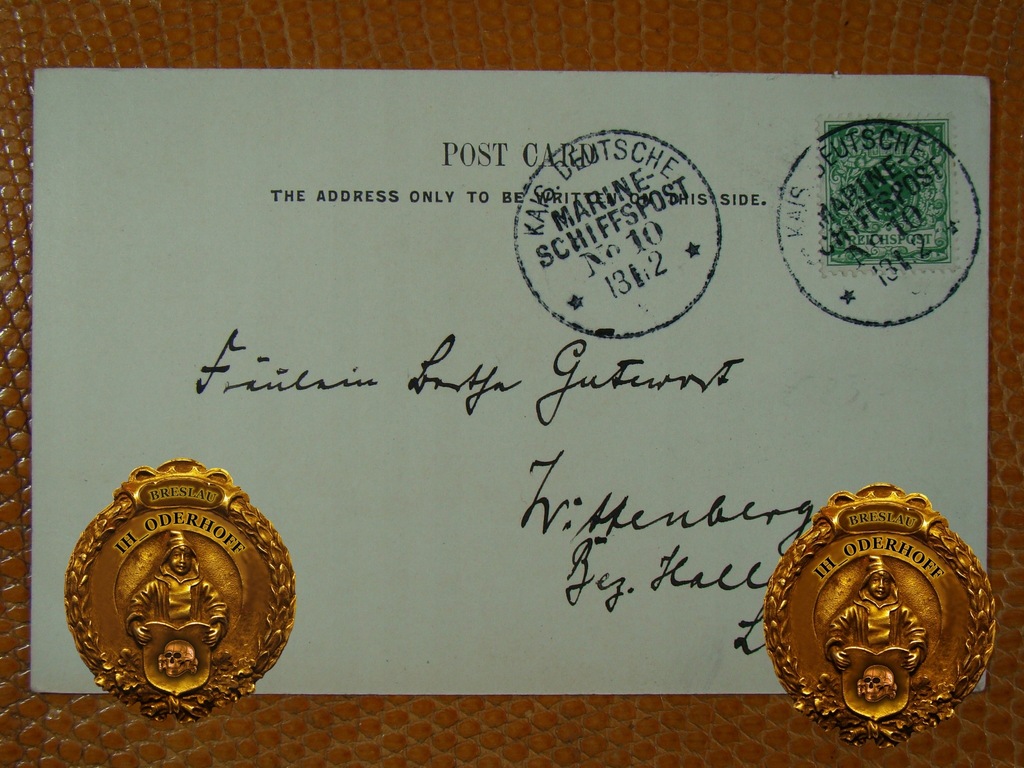 POST CARD
THE ADDRESS ONLY TO BE WRITTEN ON THIS SIDE.
KAIS. DEUTSCHE
MARINE-
SCHIFFSPOST
No 10
KAIS. DEUTSCHE
MARINE
SCHIFFSPOST
10
REICHSPOST
Fräulein Berthe Gutwort
Wittenberg
Bez. Hall
BRESLAU
IH_ODERHOFF
BRESLAU
IH_ODERHOFF